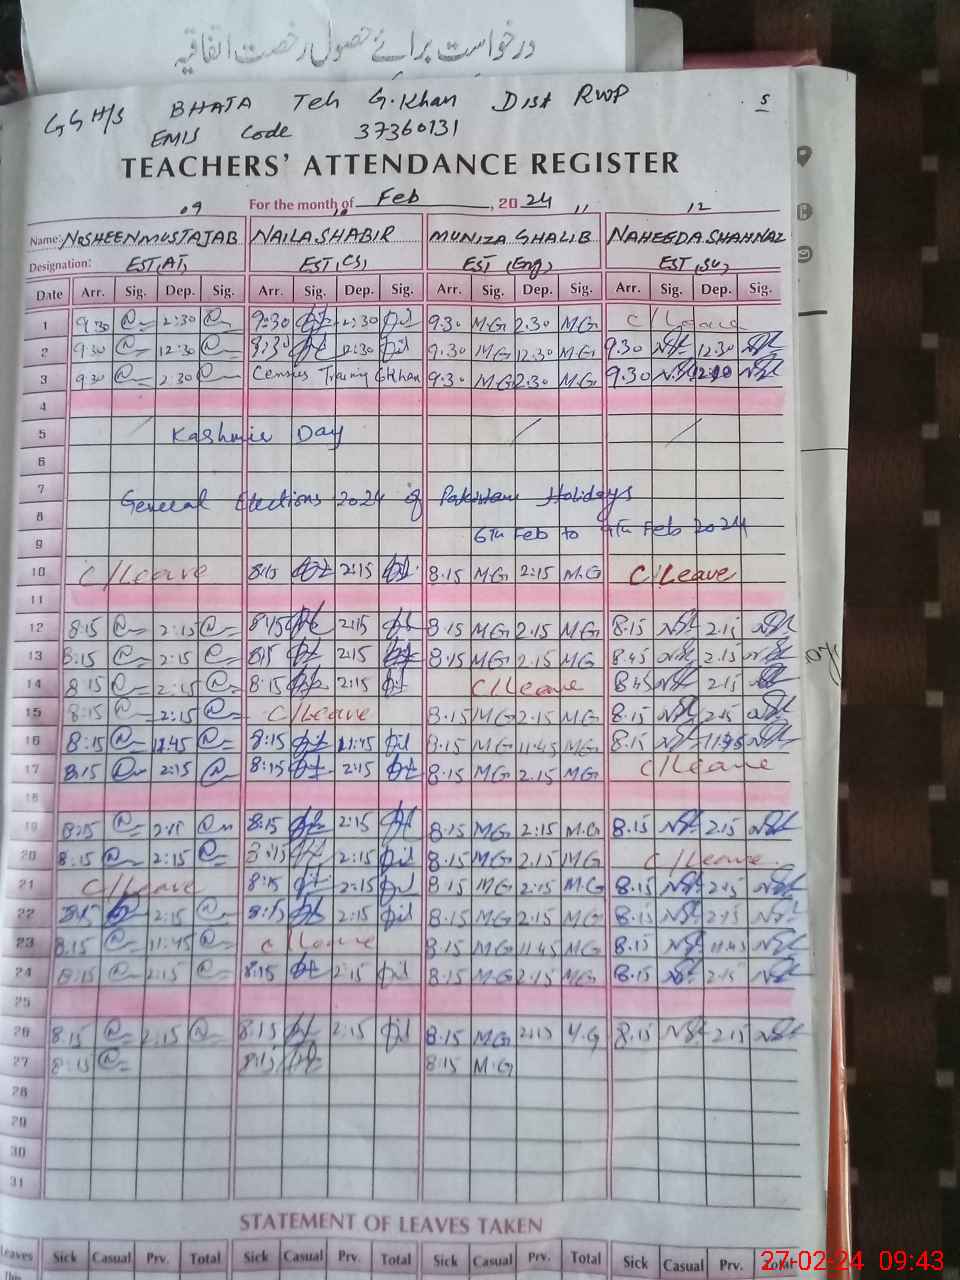 درخواست برائے حصول رخصت اتفاقیہ
GGH/S BHATA Teh G.Khan Dist RWP 5
EMIS Code 37360131
TEACHERS' ATTENDANCE REGISTER
For the month of Feb, 2024
09 10 11 12
Name: NOSHEEN MUSTAJAB NAILA SHABIR MUNIZA GHALIB NAHEEDA SHAHNAZ
Designation: EST(AT) EST(CS) EST (Eng) EST (SV)
Date Arr. Sig. Dep. Sig. Arr. Sig. Dep. Sig. Arr. Sig. Dep. Sig. Arr. Sig. Dep. Sig.
1 9:30 2:30 9:30 2:30 9.30 M.G 2.30 M.G C/Leave
2 9:30 12:30 9.30 M.G 12.30 M.G 9.30 12.30
3 9:30 2:30 Census Training G.Khan 9.30 M.G 2.30 M.G 9.30
4
5 Kashmir Day
6
7 General Elections 2024 of Pakistan Holidays
8 6th Feb to 9th Feb 2024
9
10 C/Leave 8:15 2:15 8.15 M.G 2:15 M.G C/Leave
11
12 8:15 2:15 8:15 2:15 8.15 M.G 2.15 M.G 8.15 2.15
13 8:15 2:15 8:15 2:15 8.15 M.G 2.15 M.G 8.45 2.15
14 8:15 2:15 8:15 2:15 C/Leave 8.45 2.15
15 8:15 2:15 C/Leave 8.15 M.G 2.15 M.G 8.15 2.15
16 8:15 11:45 8:15 11:45 8.15 M.G 11.45 M.G 8.15 11.45
17 8:15 2:15 8:15 2:15 8.15 M.G 2.15 M.G C/Leave
18
19 8:15 2:15 8:15 2:15 8.15 M.G 2:15 M.G 8.15 2.15
20 8:15 2:15 2:15 8.15 M.G 2.15 M.G C/Leave
21 C/Leave 8:15 2:15 8.15 M.G 2:15 M.G 8.15 2.15
22 8:15 2:15 8:15 2:15 8.15 M.G 2.15 M.G 8.15 2.15
23 8.15 11:45 C/Leave 8.15 M.G 11.45 M.G 8.15 11.45
24 8:15 2:15 8:15 2:15 8.15 M.G 2.15 M.G 8.15 2.15
25
26 8:15 2:15 8:15 2:15 8.15 M.G 2:15 M.G 8.15 2.15
27 8:15 8:15 8.15 M.G
28
29
30
31
STATEMENT OF LEAVES TAKEN
Leaves Sick Casual Prv. Total Sick Casual Prv. Total Sick Casual Prv. Total Sick Casual Prv. Total
27-02-24 09:43